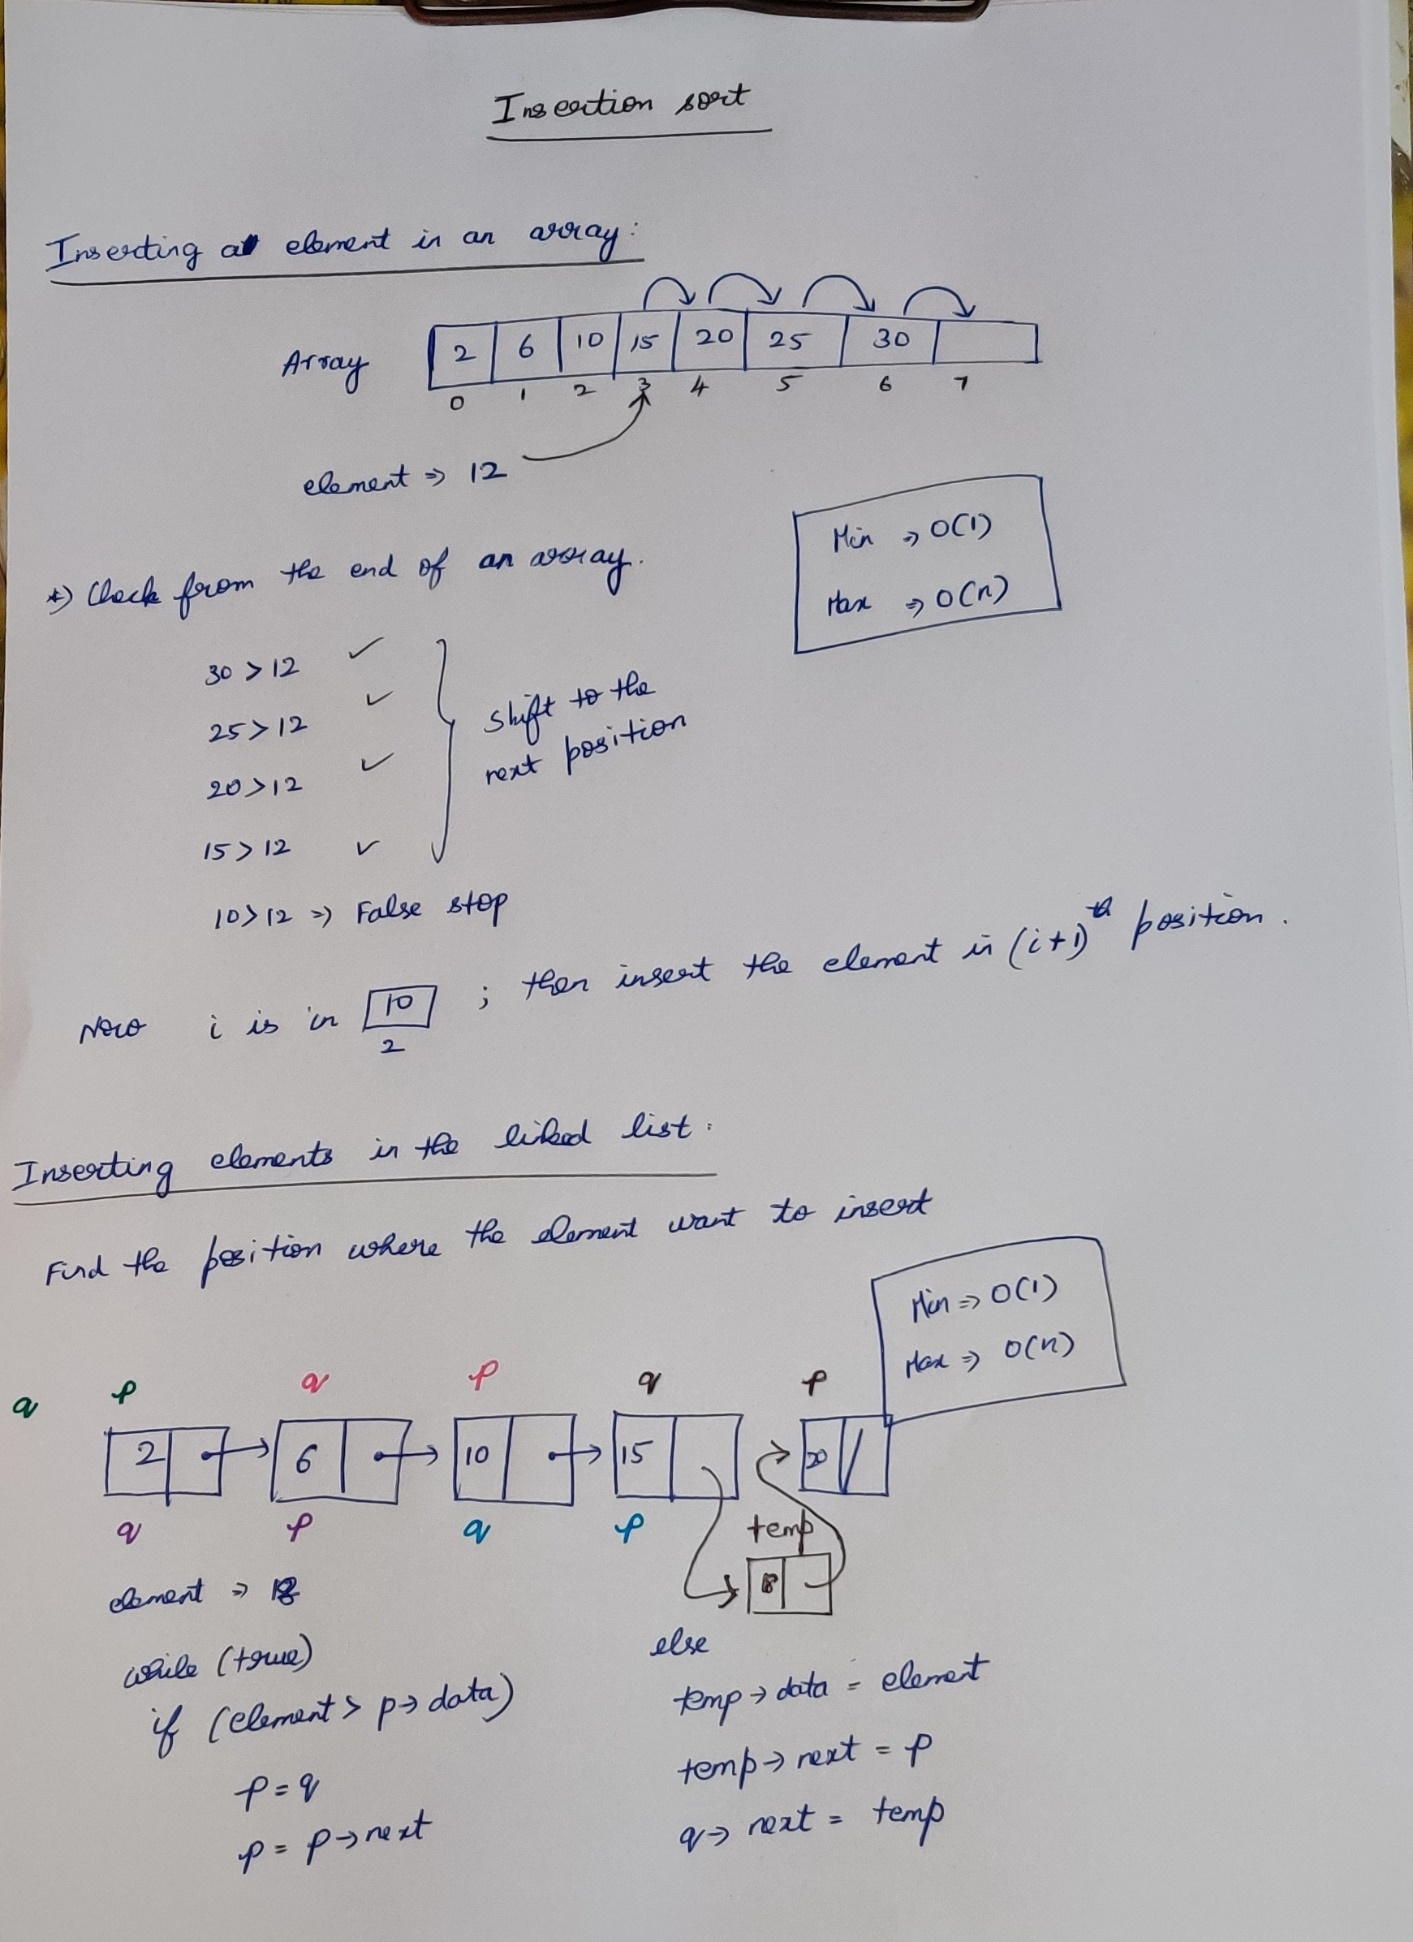 Insertion sort
Inserting a element in an array:
Array 2 6 10 15 20 25 30
0 1 2 3 4 5 6 7
element ⇒ 12
Min ⇒ O(1)
Max ⇒ O(n)
*) Check from the end of an array.
30 > 12 ✓
25 > 12 ✓
20 > 12 ✓
15 > 12 ✓
shift to the
next position
10 > 12 ⇒ False stop
Now i is in 10 ; then insert the element in (i+1)th position.
2
Inserting elements in the liked list:
Find the position where the element want to insert
Min ⇒ O(1)
Max ⇒ O(n)
q p q p q p
2 6 10 15 20
q p q p temp
18
element ⇒ 18
while (true)
if (element > p→data)
p = q
p = p→next
else
temp→data = element
temp→next = p
q→next = temp